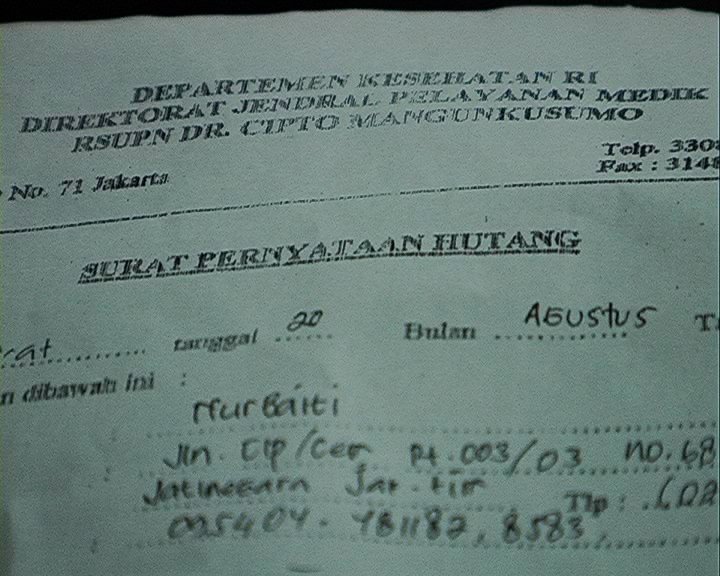 DEPARTEMEN KESEHATAN RI
DIREKTORAT JENDRAL PELAYANAN MEDIK
RSUPN DR. CIPTO MANGUNKUSUMO
No. 71 Jakarta
Telp. 330
Fax : 3148
SURAT PERNYATAAN HUTANG
tanggal 20 Bulan AGUSTUS
dibawah ini :
Nurbaiti
Jln. Cip/Cem Rt. 003/03 no. 68
Jatinegara Jak-tim Tlp :
095404. 781182, 8583